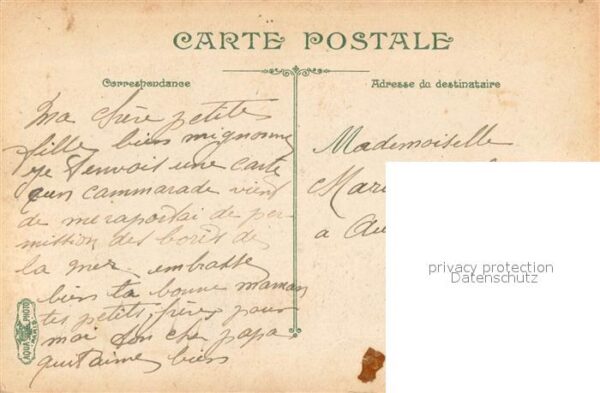 CARTE POSTALE
Correspondance
Adresse du destinataire
Ma chère petites
filles bien mignonne
je tenvois une carte
qun cammarade vient
de me raportai de per
mission des bords de
la mer embrasse
bien ta bonne maman
tes petits frères pour
moi ton cher papa
quit aime bien
Mademoiselle
Mari
a Au
privacy protection
Datenschutz
AQUA PHOTO
PARIS